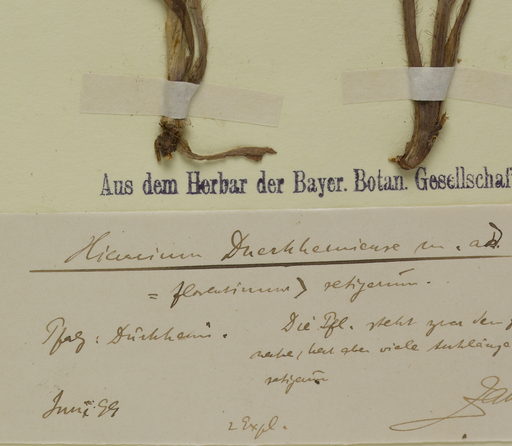 Aus dem Herbar der Bayer. Botan. Gesellschaf
Hieracium Duerkhemiense m.
= florentinum > setigerum.
Pfalz: Dürkheim. Die Pfl. steht zwar dem
nahe, hat aber viele Anklänge
setigerum
Juni 99
2 Expl.